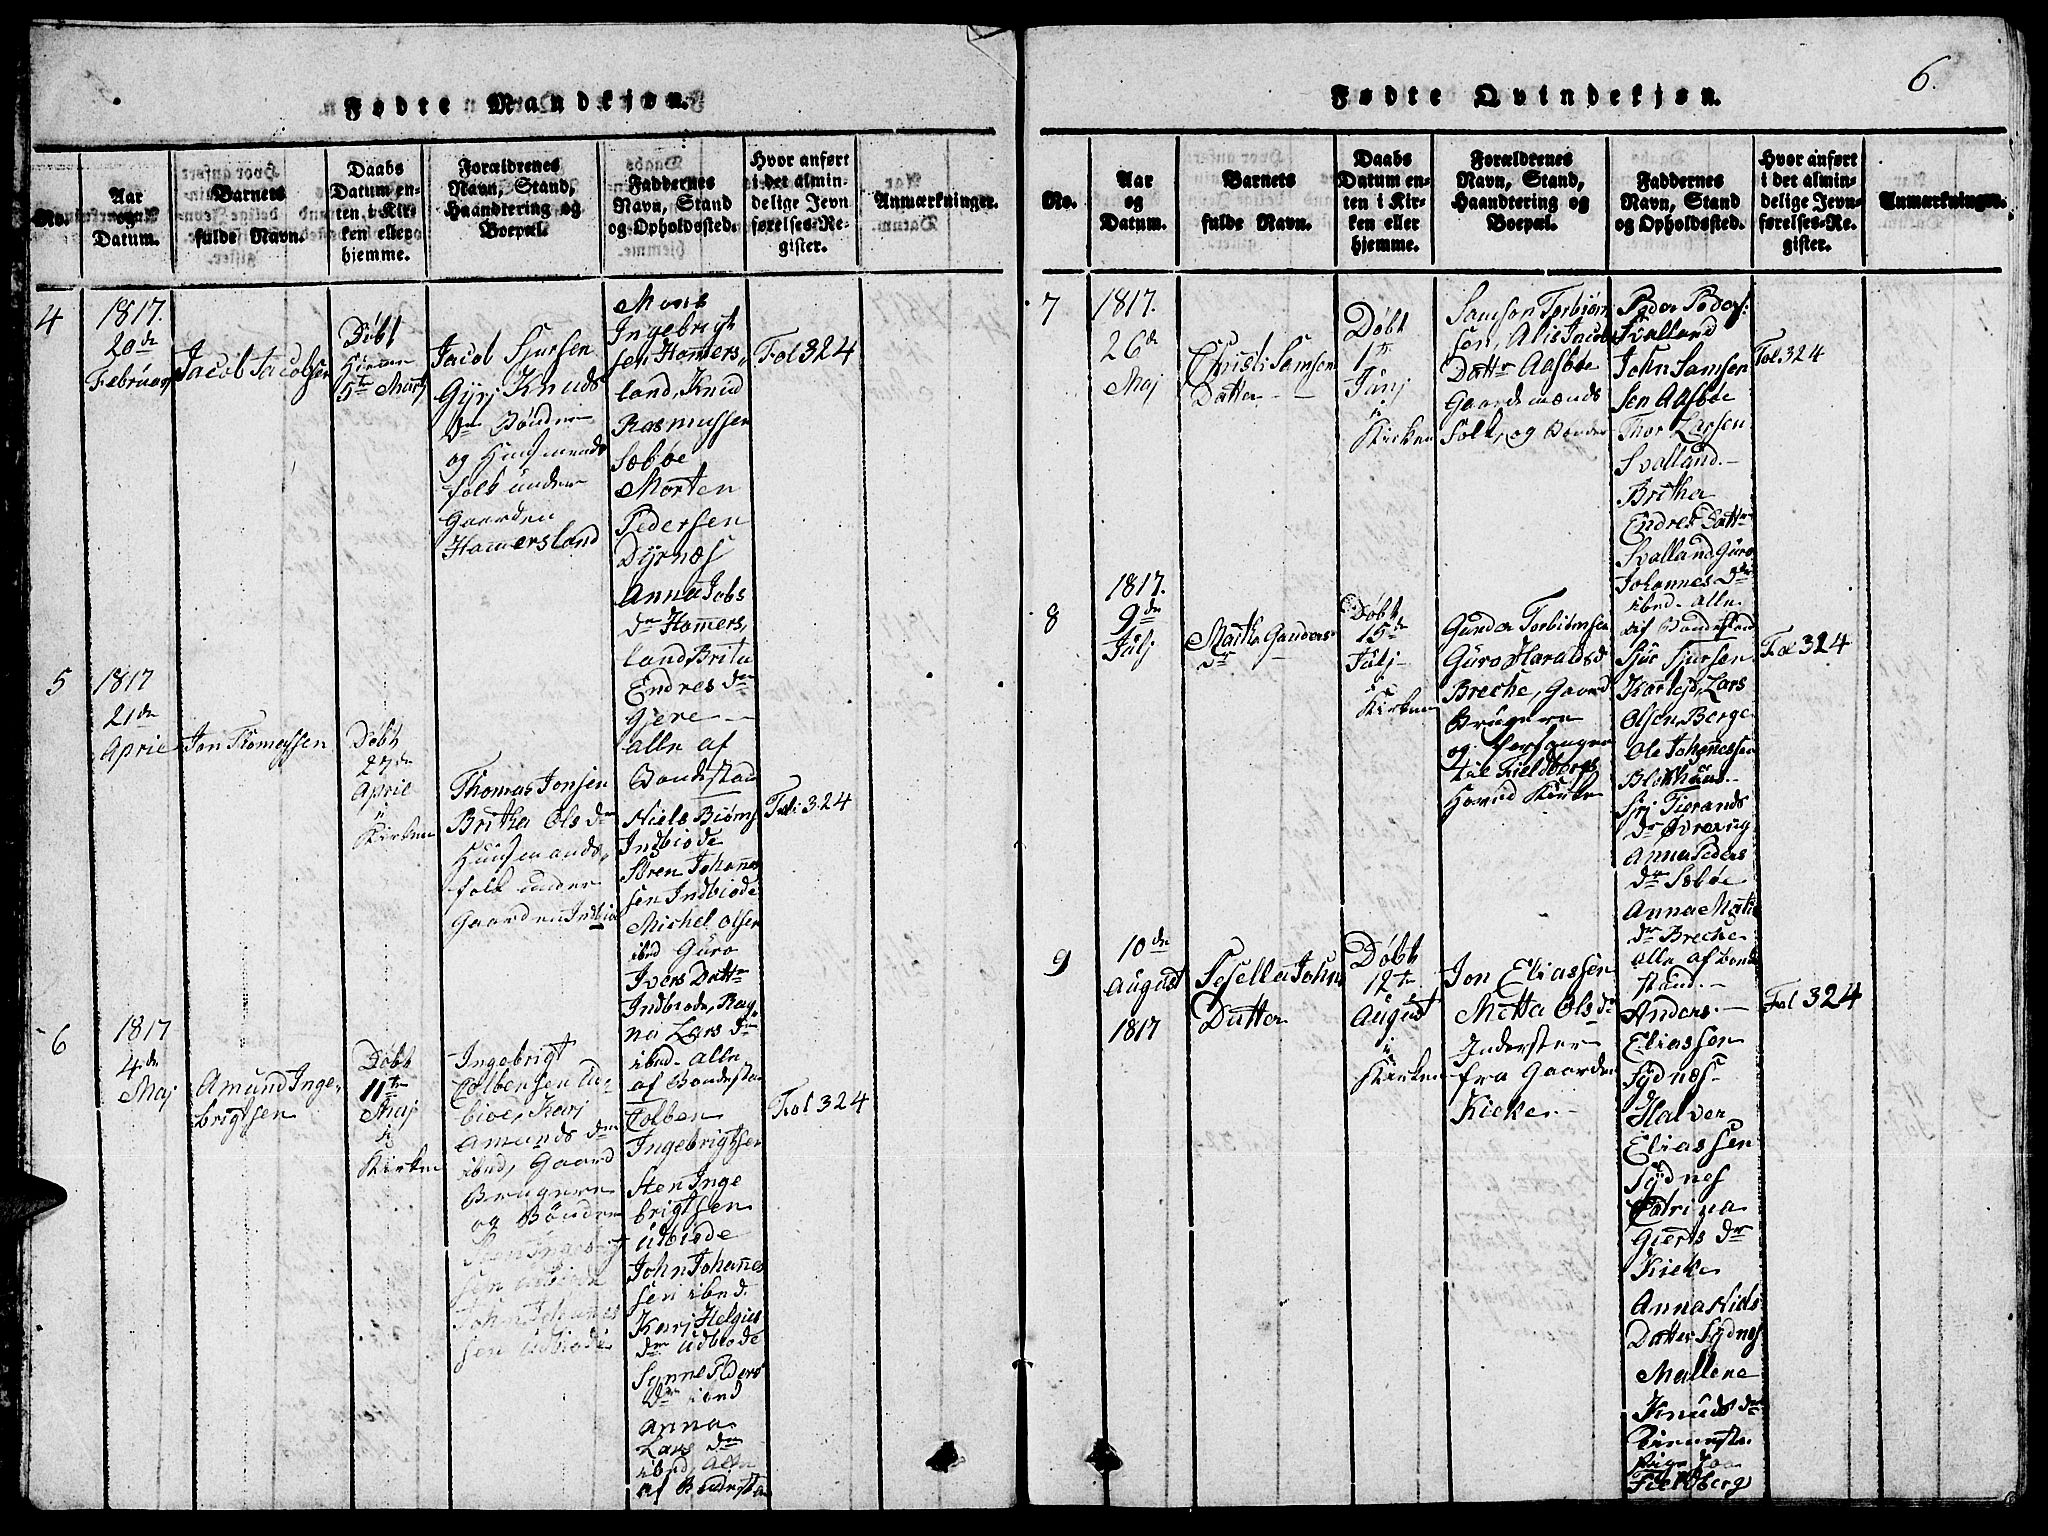 6.
Fødte Mandkjøn.
No.
Aar
og
Datum.
Barnets
fulde Navn.
Daabs
Datum en-
ten i Kir-
ken eller
hjemme.
Forældrenes
Navn, Stand,
Haandtering og
Boepæl.
Faddernes
Navn, Stand
og Opholdssted.
Hvor anført
i det almin-
delige Jevn-
førelses-Re-
gister.
Anmærkninger.
4
1817.
20de
Februar
Jacob Jacobsen
Døbt
hiemme
5te Marts
Jacob Sjursen
Gyrj Knuds
dr Bønder
og Huusmands
folk under
Gaarden
Hamersland
Mons
Ingebrigt
sen Hamers,
land, Knud
Rasmussen
Sæbøe
Morten
Pedersen
Dyrnæs
Anna Jobs
dr Hamers,
land, Brita
Endres dr
Gjere -
alle af
Bondestad
Fol 324
5
1817
21de
April
Jon Thomassen
Døbt
27de
April
i
Kirken
Thomas Jonsen
Britha Ols dr
Huusmands,
folk under
Gaarden Indbiø
Niels Biørns
Indbiøde
Søren Johanne
sen Indbiøde
Michel Olsen
ibd Guro
Ivers Datter
Indbiøde, Rag
na Lars dr
ibd. alle
af Bondesta
Fol: 324
6
1817
4de
Maj
Amund Inge,
brigtsen
Døbt
11te
Maj
i
Kirken
Ingebrigt
Colbensen Ud,
biøe, Karj
Amunds dr
ibd, Gaard
Brugere
og Bønder
Sten Ingebrigt
sen Udbiøde
John Johannes
sen Udbiøde
Colben
Ingebrigtsen
Sten Inge
brigtsen
Udbiøde
John Johannes
sen ibd.
Karj Helgies
dr Udbiøde
Synne Peders
dr ibd
Anna
Lars dr
ibd, alle
af Bondesta
Fol 324
Fødte Qvindekjøn.
No.
Aar
og
Datum.
Barnets
fulde Navn.
Daabs
Datum en-
ten i Kir-
ken eller
hjemme.
Forældrenes
Navn, Stand,
Haandtering og
Boepæl.
Faddernes
Navn, Stand
og Opholdssted.
Hvor anført
i det almin-
delige Jevn-
førelses-Re-
gister.
Anmærkninger.
7
1817.
26de
Maj
Christi Samsen
Datter
Døbt
1te
Junj
i
Kirken
Samson Torbiørn
sen, Alis Jacobs
Datter Aasbøe
Gaardsmænds
Folk, og Bønder
Peder Peders:
Svalland
John Samsen
sen Aasbøe
Thor Larsen
Svalland.
Britha
Endres Datter
Svalland, Guro
Johannes dr
ibd. alle
af Bondestand
Fol 324
8
1817.
9de
Julj
Martha Gunders
dr
Døbt
15de
Julj
i
Kirken
Gunder Torbiørnsen
Guro Haralds d
Breche, Gaard
Brugere
og Forsanger
til Fieldbergs
Hoved Kirke
Sjur Sjursen
Lars
Olsen Berge
Ole Johannessen
Blokhuus
Sri Tierands
dr Øvrevig
Anna Peders
dr Sæbøe
Anna Mati
dr Breche
alle af Bonde
stand.
Fol 324
9
10de
August
1817
Sesella Johns
Datter
Døbt
12te
August
i
Kirken
Jon Eliassen
Metta Ols dr
Inderster
fra Gaarden
Kieke
Anders
Eliassen
Sydnes
Halver
Eliassen
Sydnes
Catrina
Gierts dr
Kieke
Anna Niels
Datter Sydnes
Mallene
Knuds dr
paa
Fieldberg
Fol 324